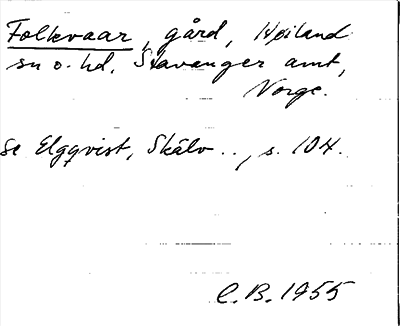 Folkvaar, gård, Høiland
sn o. hd. Stavanger amt,
Norge.
Se Elgqvist, Skälv.., s. 104.
C.B. 1955